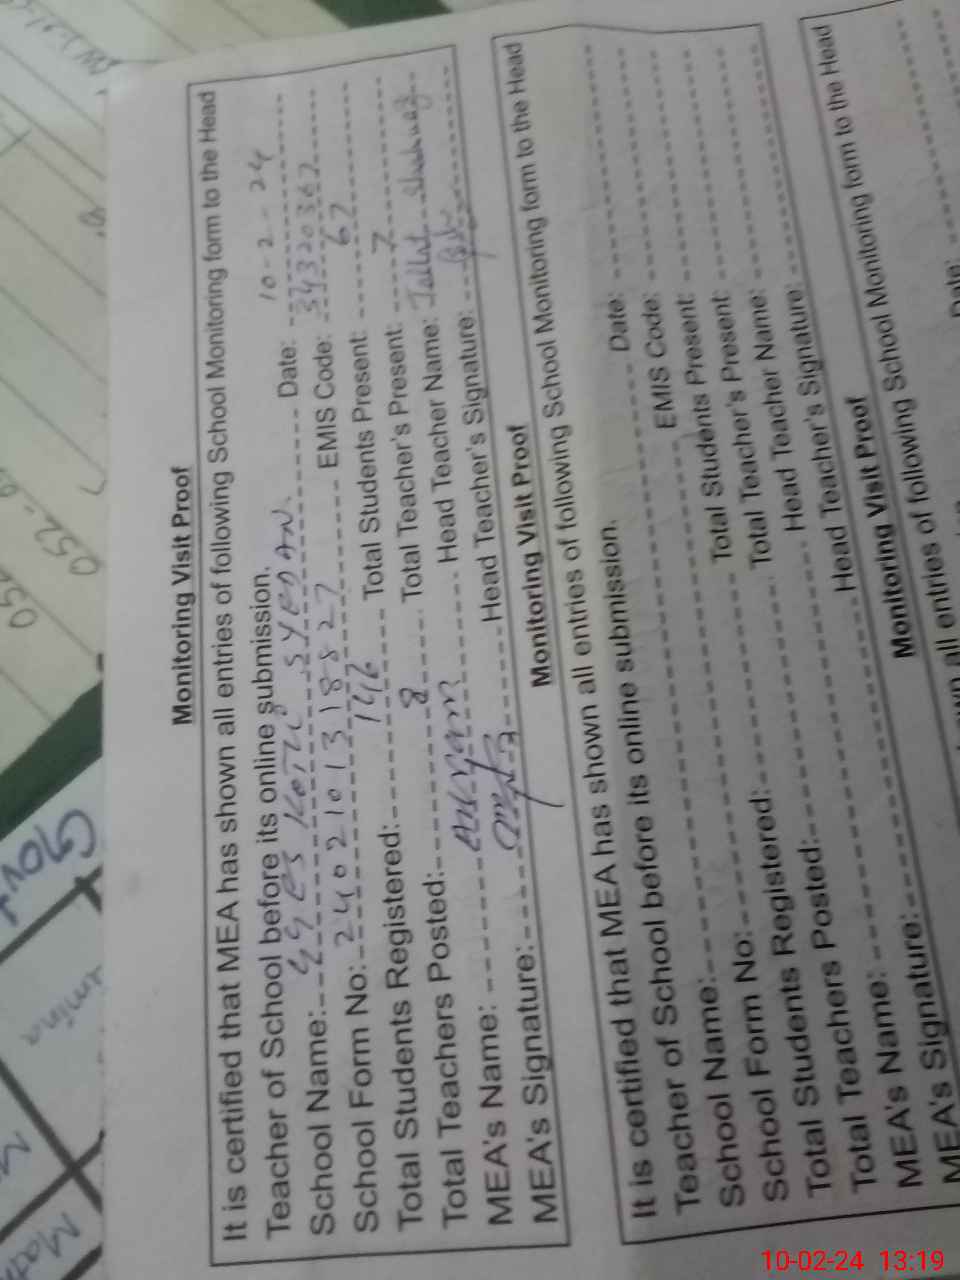 Monitoring Visit Proof
It is certified that MEA has shown all entries of following School Monitoring form to the Head
Teacher of School before its online submission.
School Name: GGES KOTLI SYEDAN. Date: 10-2-24
School Form No: 2402101318827 EMIS Code: 34320362
Total Students Registered: 146 Total Students Present: 67
Total Teachers Posted: 8 Total Teacher's Present: 7
MEA's Name: Head Teacher Name: Tallat Shahnaz
MEA's Signature: Head Teacher's Signature:
Monitoring Visit Proof
It is certified that MEA has shown all entries of following School Monitoring form to the Head
Teacher of School before its online submission.
School Name: Date:
School Form No: EMIS Code:
Total Students Registered: Total Students Present:
Total Teachers Posted: Total Teacher's Present:
MEA's Name: Head Teacher Name:
MEA's Signature: Head Teacher's Signature:
Monitoring Visit Proof
all entries of following School Monitoring form to the Head
Date:
Gov
Math
052
10-02-24 13:19